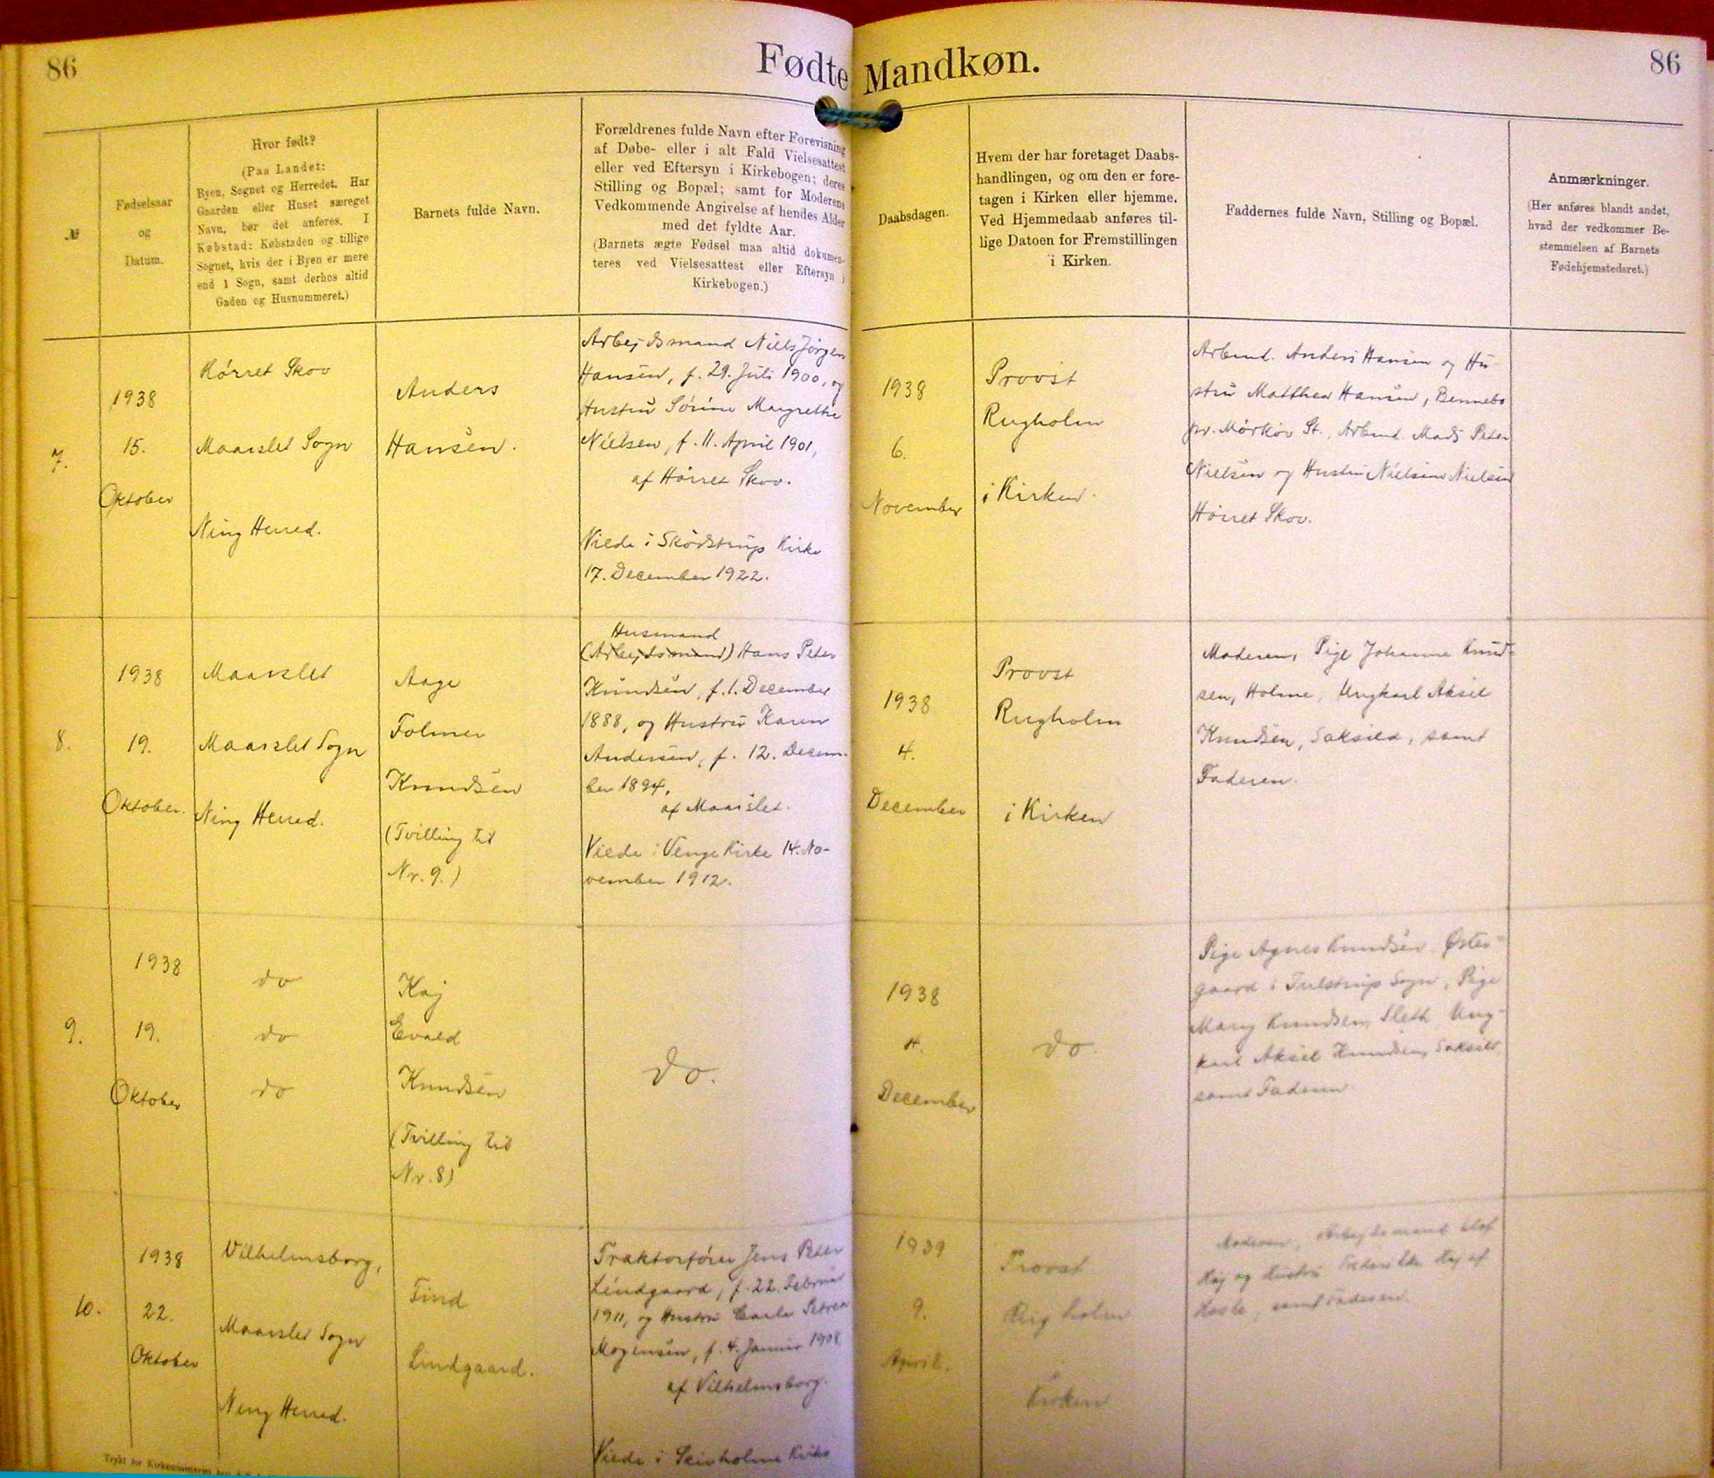 86
Fødte Mandkøn.
86
№
Fødselsaar
og
Datum.
Hvor født?
(Paa Landet:
Byen, Sognet og Herredet. Har
Gaarden eller Huset særeget
Navn, bør det anføres. I
Købstad: Købstaden og tillige
Sognet, hvis der i Byen er mere
end 1 Sogn, samt derhos altid
Gaden og Husnummeret.)
Barnets fulde Navn.
Forældrenes fulde Navn efter Forevisning
af Døbe- eller i alt Fald Vielsesattest
eller ved Eftersyn i Kirkebogen; deres
Stilling og Bopæl; samt for Moderens
Vedkommende Angivelse af hendes Alder
med det fyldte Aar.
(Barnets ægte Fødsel maa altid dokumen-
teres ved Vielsesattest eller Eftersyn i
Kirkebogen.)
Daabsdagen.
Hvem der har foretaget Daabs-
handlingen, og om den er fore-
tagen i Kirken eller hjemme.
Ved Hjemmedaab anføres til-
lige Datoen for Fremstillingen
i Kirken.
Faddernes fulde Navn, Stilling og Bopæl.
Anmærkninger.
(Her anføres blandt andet,
hvad der vedkommer Be-
stemmelsen af Barnets
Fødehjemstedsret.)
7.
1938
15.
Oktober
Hørret Skov
Maarslet Sogn
Ning Herred.
Anders
Hansen.
Arbejdsmand Niels Jørgen
Hansen, f. 29. Juli 1900, og
Hustru Sørine Margrethe
Nielsen, f. 11. April 1901,
af Hørret Skov.
Viede i Skødstrup Kirke
17. December 1922.
1938
6.
November
Provst
Rugholm
i Kirken.
Arbmd. Anders Hansen og Hu-
stru Matthea Hansen, Bennebo
pr. Mørkøv St., Arbmd. Mads Peter
Nielsen og Hustru Nielsine Nielsen
Hørret Skov.
8.
1938
19.
Oktober.
Maarslet
Maarslet Sogn
Ning Herred.
Aage
Folmer
Knudsen
(Tvilling til
Nr. 9.)
Husmand
(Arbejdsmand) Hans Peter
Knudsen, f. 1. December
1888, og Hustru Karen
Andersen, f. 12. Decem-
ber 1894,
af Maarslet.
Viede i Venge Kirke 14. No-
vember 1912.
1938
4.
December
Provst
Rugholm
i Kirken
Moderen, Pige Johanne Knud-
sen, Holme, Ungkarl Aksel
Knudsen, Saksild, samt
Faderen.
9.
1938
19.
Oktober
do
do
do
Kaj
Evald
Knudsen
(Tvilling til
Nr. 8)
do.
1938
4.
December
do.
Pige Agnes Knudsen, Øster-
gaard i Tulstrup Sogn, Pige
Mary Knudsen, Sleth Ung-
karl Aksel Knudsen, Saksild
samt Faderen
10.
1938
22.
Oktober
Vilhelmsborg,
Maarslet Sogn
Ning Herred.
Find
Lindgaard.
Traktorfører Jens Peter
Lindgaard, f. 22. Februar
1911, og Hustru Carla Petrea
Mogensen, f. 4. Januar 1908
af Vilhelmsborg.
Viede i Skivholme Kirke
1939
9.
April.
Provst
Rugholm
Kirken
Moderen, Arbejdsmand Olof
Høj og Hustru Høj af
samt Faderen.